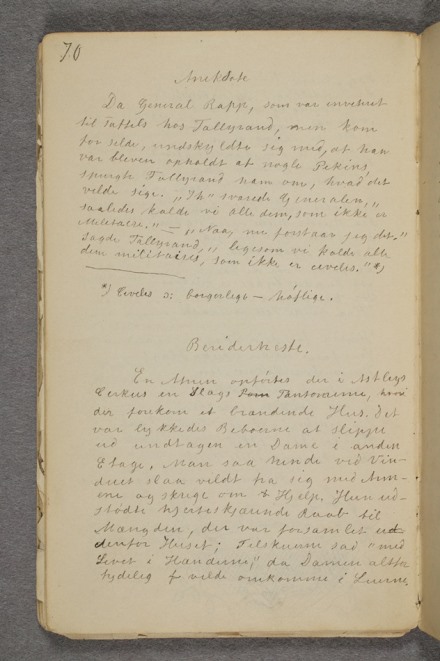 70
Anekdote
Da General Rapp, som var inviteret
til Taffels hos Tallyrand, men kom
for silde, undskyldte sig med, at han
var bleven opholdt af nogle Pekins,
spurgte Tallyrand ham om, hvad det
vilde sige. „Ih" svarede Generalen, „
saaledes kalde vi alle dem, som ikke er
Militaere." — „Naa, nu forstaar jeg det,"
sagde Tallyrand, „ligesom vi kalde alle
dem militaires, som ikke er civiles." *)
*) Civiles ɔ: borgerlige — høflige.
Beriderheste.
En Aften opførtes der i Astleys
Cerkus en Slags Pantomime, hvori
der forekom et brændende Hus. Det
var lykkedes Beboerne at slippe
ud undtagen en Dame i anden
Etage, Man saa hende ved Vin-
duet slaa vildt fra sig med Arm-
ene og skrige om Hjelp, Hun ud-
stødte hjerteskjærende Raab til
Mængden, der var forsamlet ud
denfor Huset; Tilskuerne sad "med
Livet i Hænderne," da Damen altfor
tydelig vilde omkomme i Luerne.